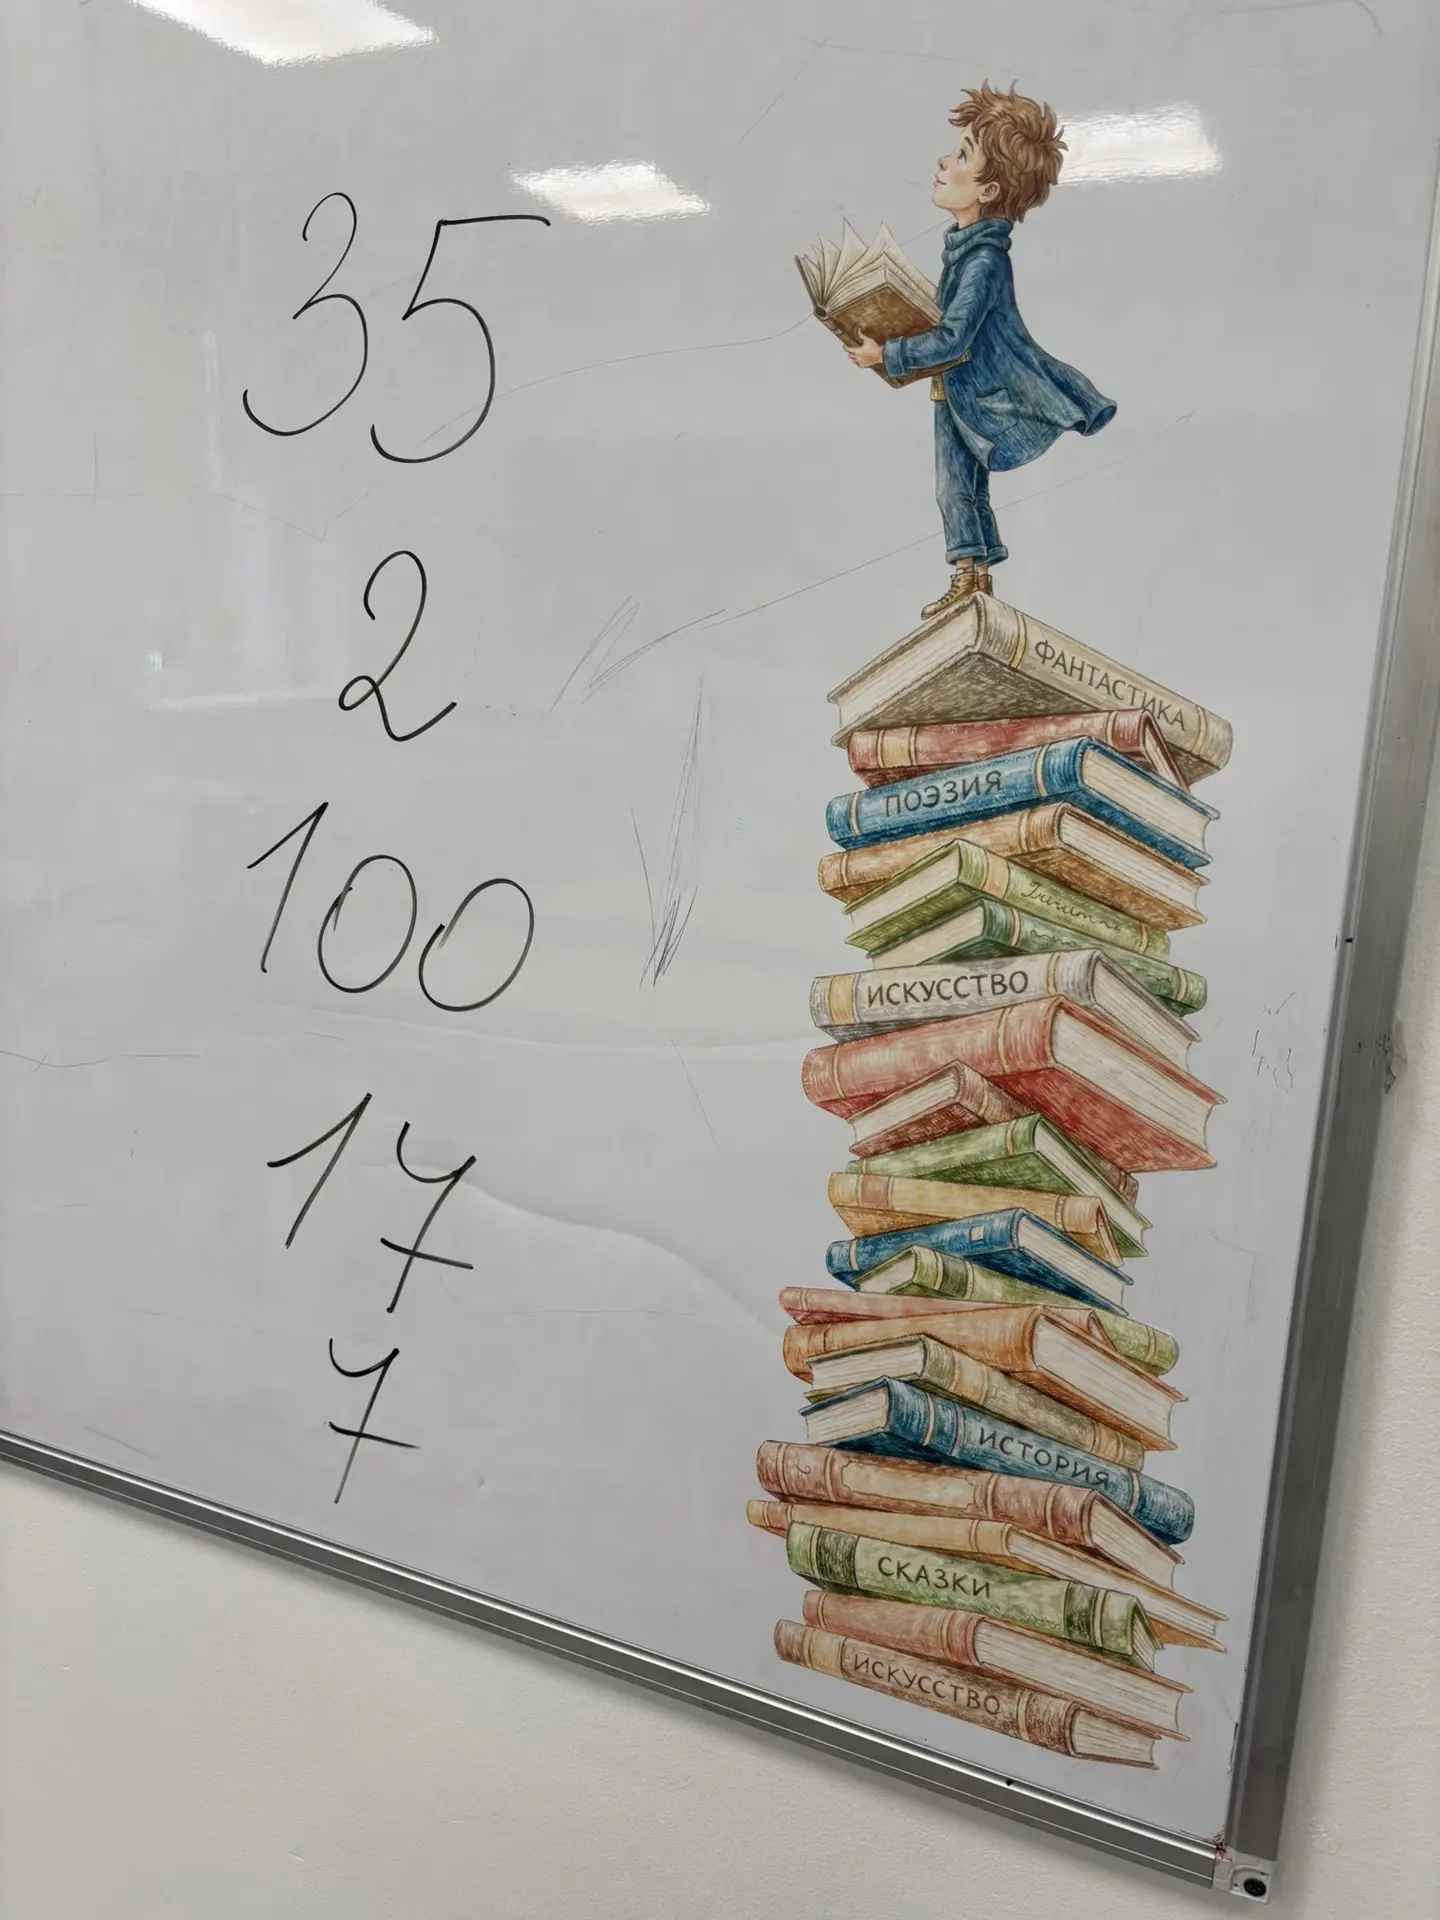 35
2
100
17
7
ФАНТАСТИКА
ПОЭЗИЯ
ИСКУССТВО
ИСТОРИЯ
СКАЗКИ
ИСКУССТВО